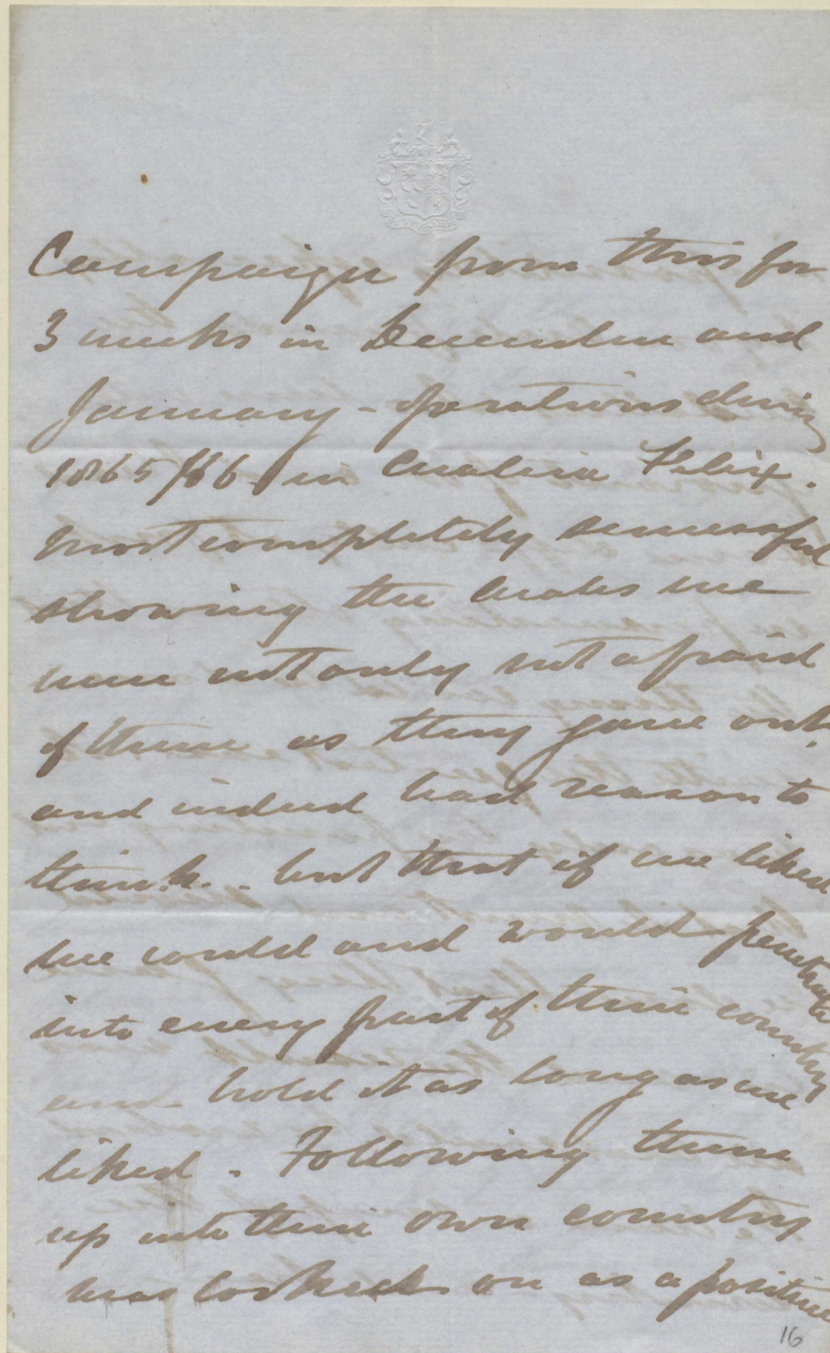 Campaign from this for
3 weeks in December and
January - operations during
1865/66 in Arabia Felix.
most completely successful
showing the Arabs we
were not only not afraid
of them as they gave out,
and indeed had reason to
think. - but that if we liked
we could and would penetrate
into every part of their country
and - hold it as long as we
liked. Following them
up into their own country
was looked on as a positive
16